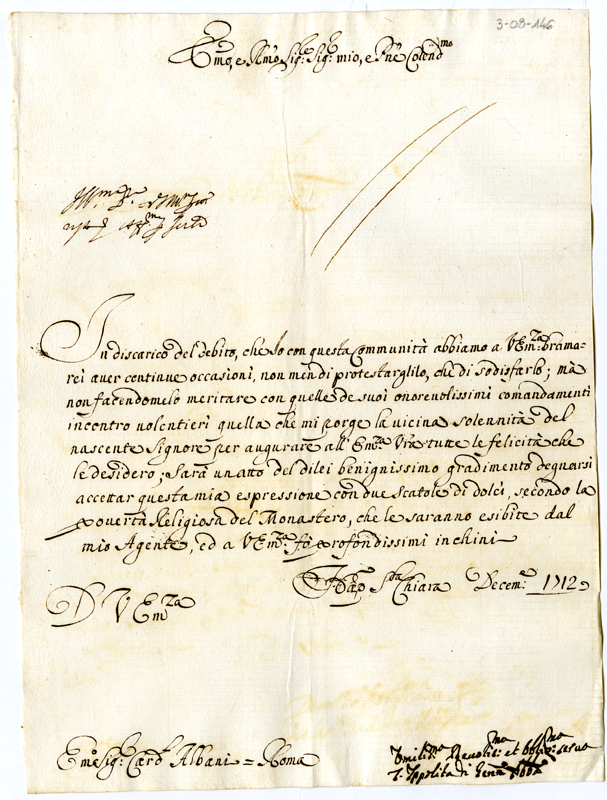 3-08-146
Emo, e Rmo Sig:re Sig:re mio, e Pne Colendmo
In discarico del debito, che Io con questa Communità abbiamo a VEm:za brama=
rei aver continue occasioni, non men di protestarglilo, che di sodisfarlo; mà
non facendomelo meritare con quelle de suoi onorevolissimi comandamenti
incontro volentieri quella che mi porge la vicina solennità del
nascente Signore per augurare all'Emza Vra tutte le felicità che
le desidero; Sarà un atto del di lei benignissimo gradimento degnarsi
accettar questa mia espressione con due scatole di dolci, secondo la
povertà Religiosa del Monastero, che le saranno esibite dal
mio Agente, ed a VEm:za fò profondissimi inchini
Nap Sta Chiara Decem:e 1712
D V Emza
Emo Sig:r Card.l Albani = Roma
Umiliss:ma Devotiss:ma et Obblig:ma serva
S. Ippolita di Abba